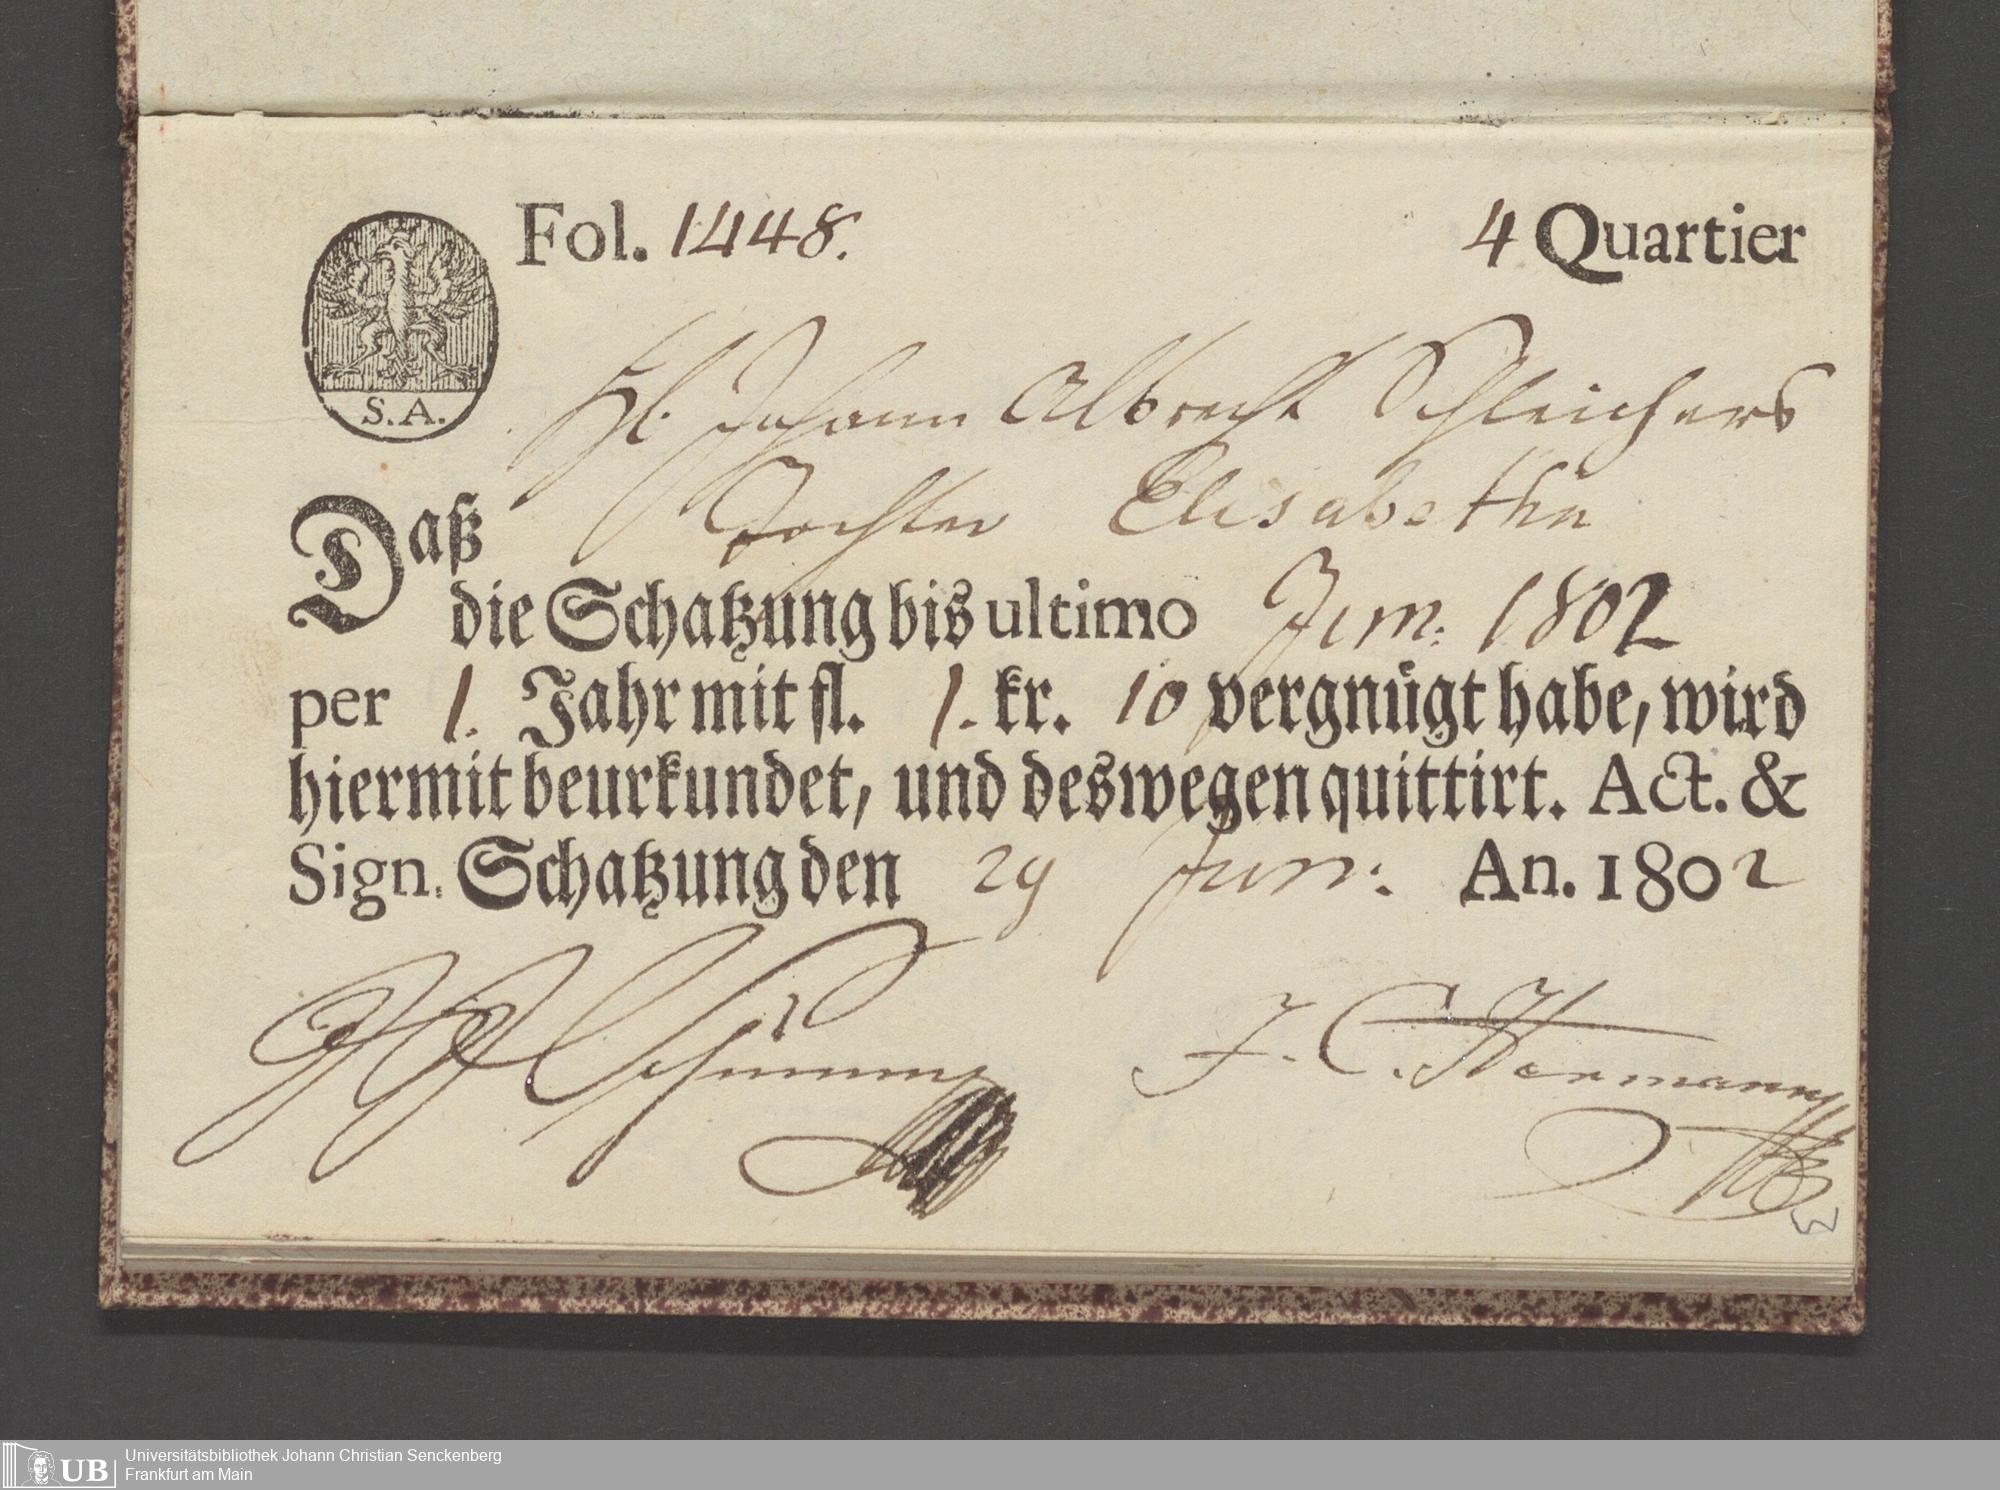 Fol. 1448.
4 Quartier
S. A.
Hl. Johann Albrecht Schleichers
Tochter Elisabetha
Daß
die Schatzung bis ultimo Jun: 1802
per 1. Jahr mit fl. 1. kr. 10 vergnügt habe, wird
hiermit beurkundet, und deswegen quittirt. Act. &
Sign. Schatzung den 29 Jun: An. 1802
J. C. Hermann
3
UB
Universitätsbibliothek Johann Christian Senckenberg
Frankfurt am Main